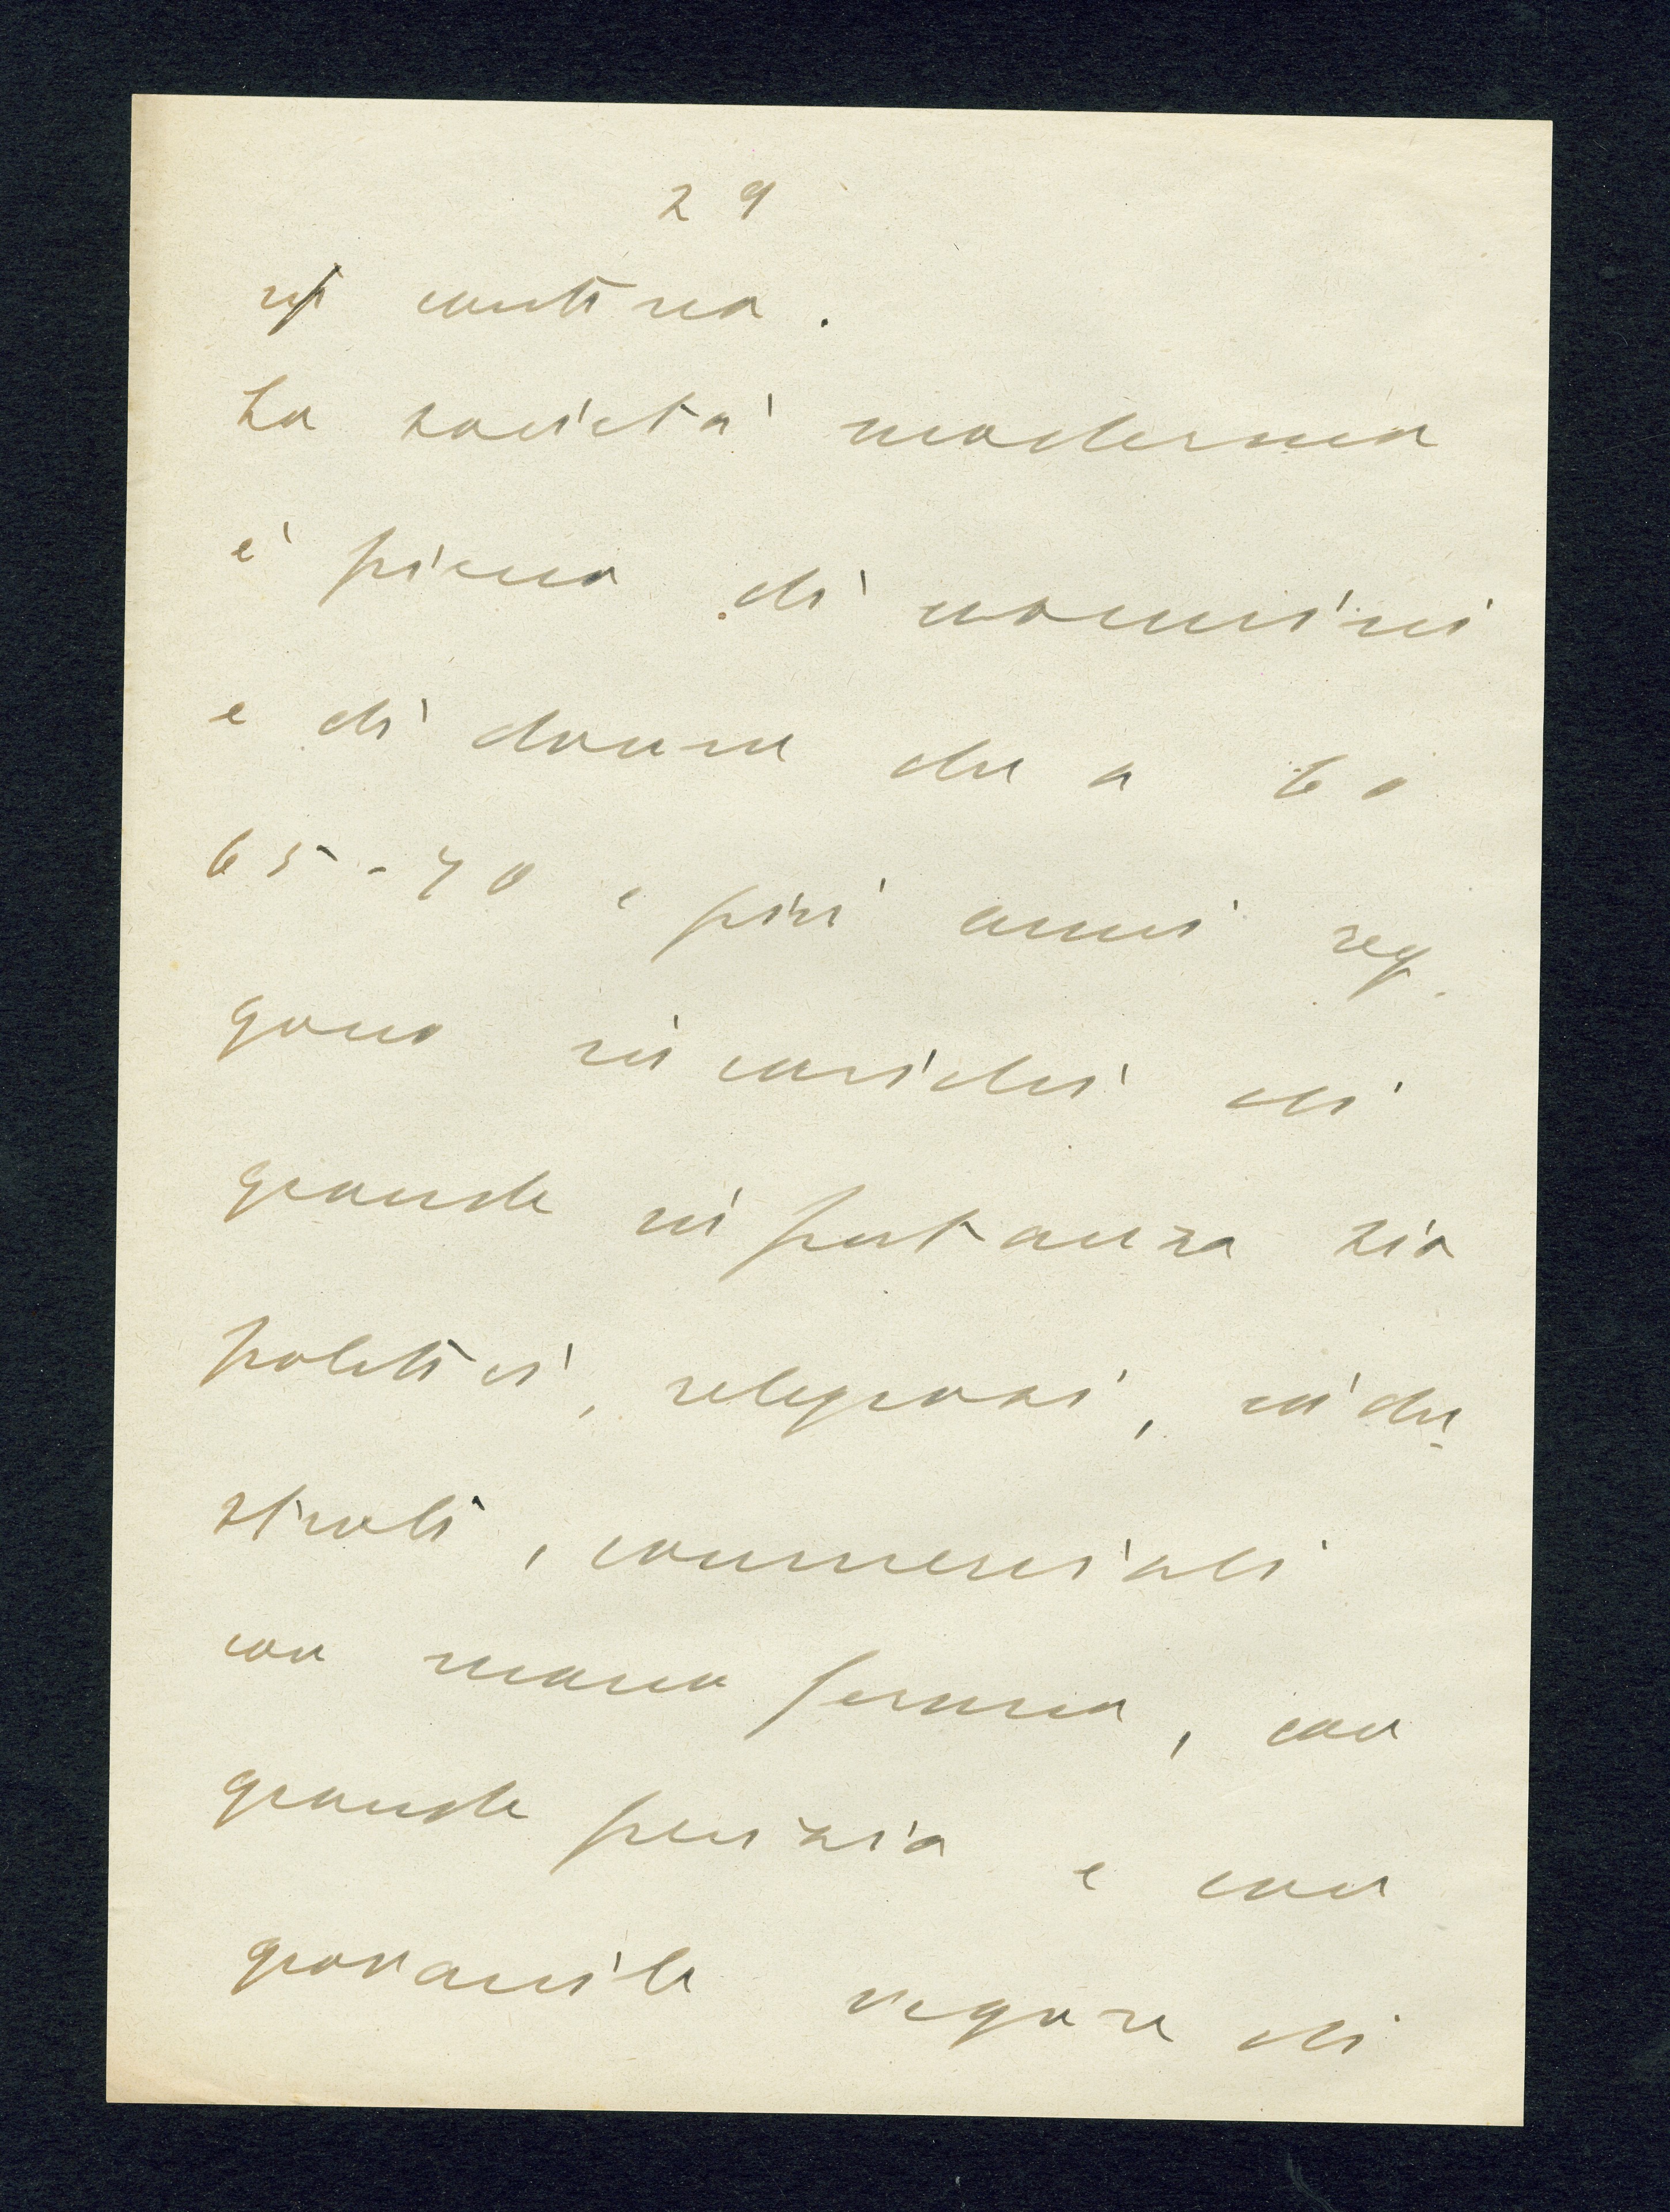 29
continua.
La società moderna
è piena di uomini
e di donne che a 60
65-70 e più anni reg-
gono incarichi di
grande importanza sia
politici, religiosi, indu-
striali, commerciali
con mano ferma, con
grande perizia e con
giovanile vigore di